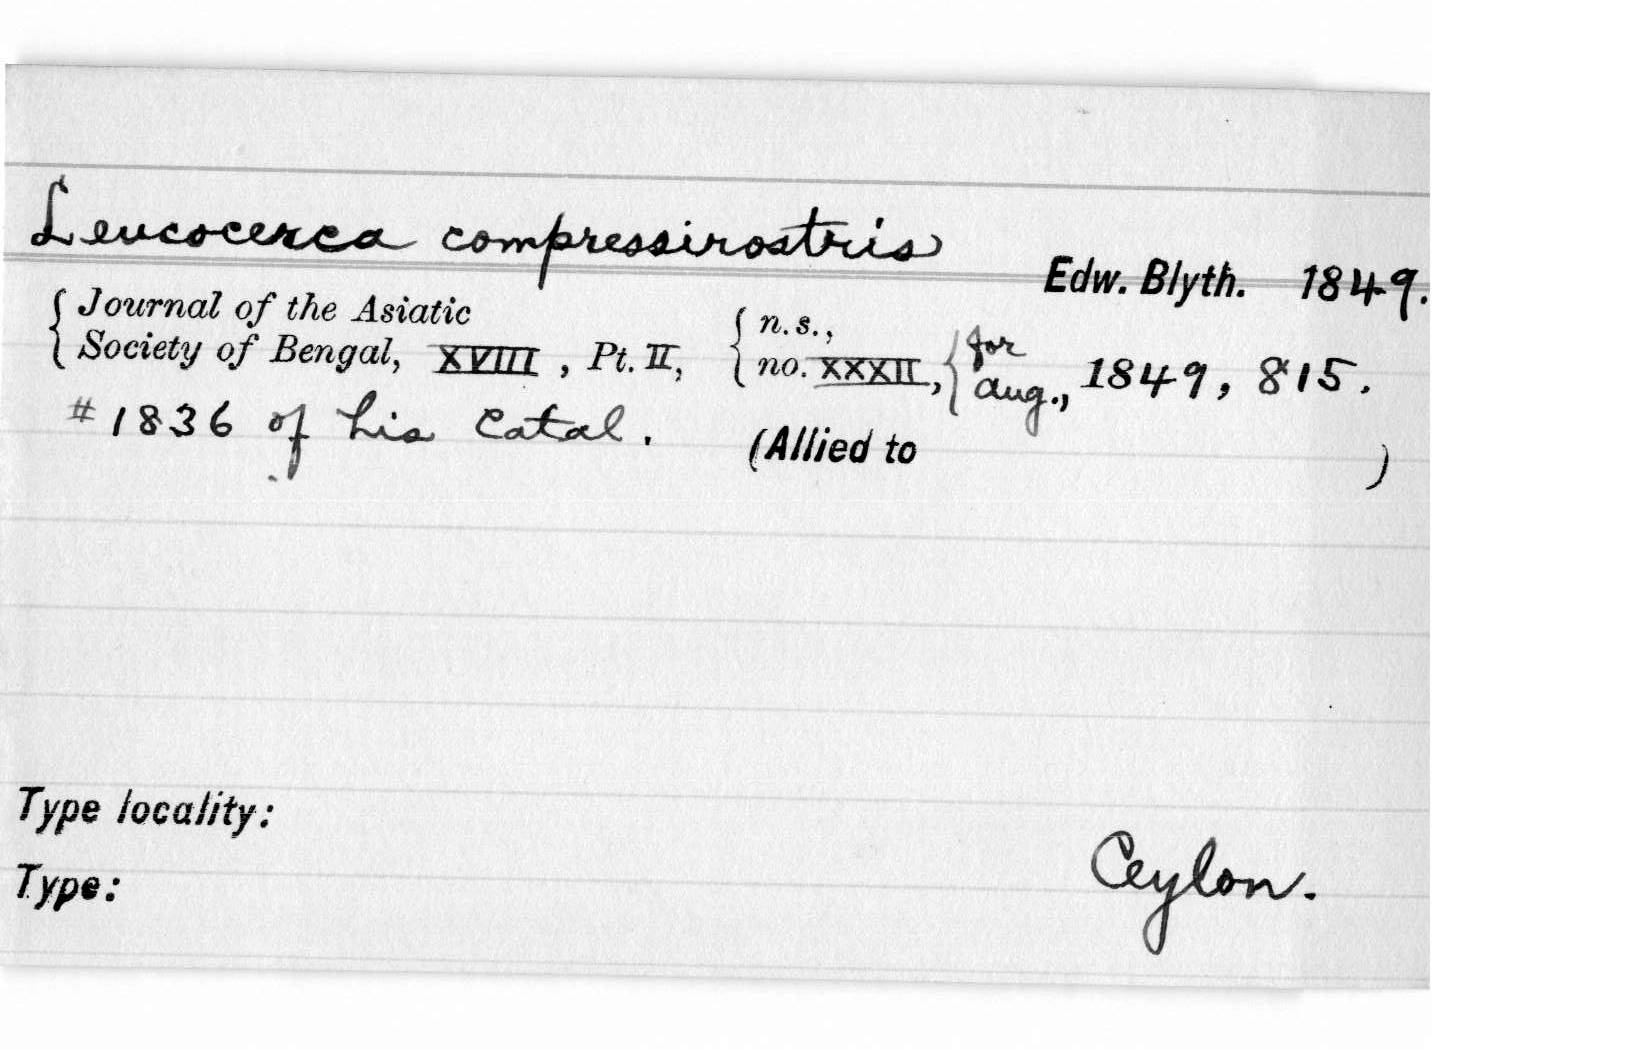 Leucocerca compressirostris
Edw. Blyth. 1849.
{ Journal of the Asiatic { n.s., { for
Society of Bengal, XVIII, Pt. II, no. XXXII, Aug., 1849, 815.
#1836 of his Catal. (Allied to )
Type locality:
Ceylon.
Type: